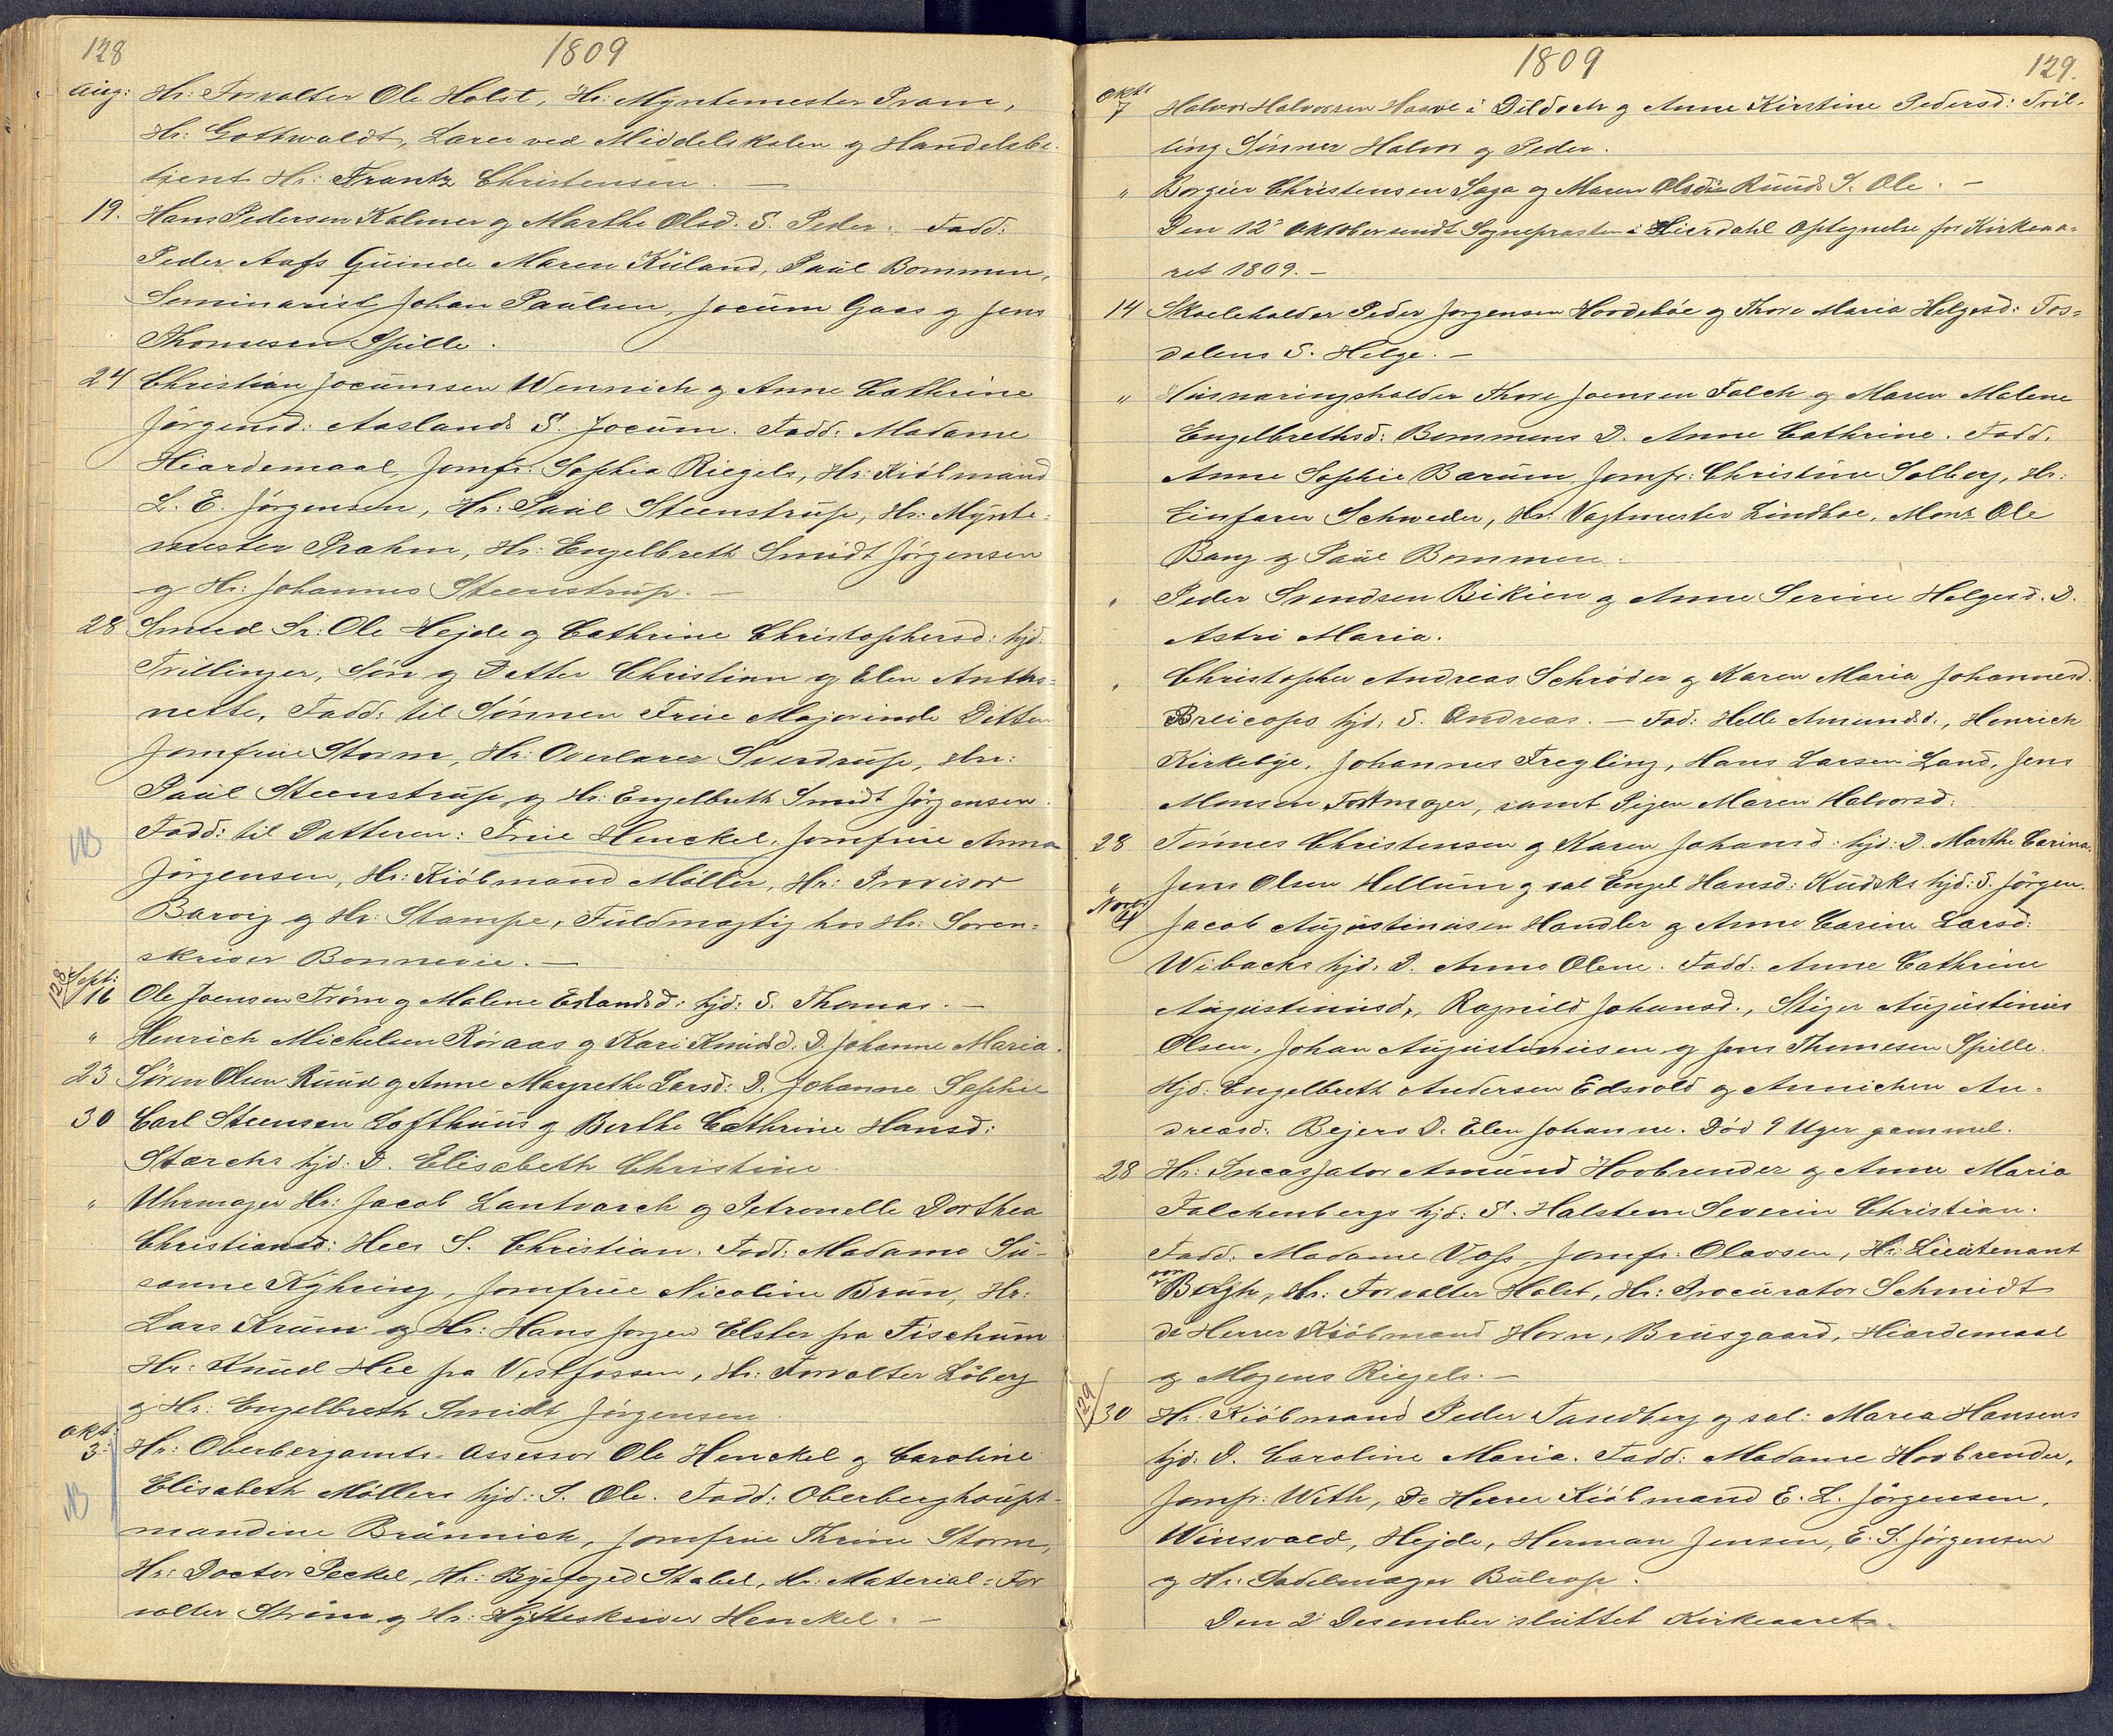 128
1809
Aug: Hr: Forvalter Ole Holst, Hr: Myntemester Pram,
Hr: Gottwaldt, Lærer ved Middelskolen og Handelsbe-
tjent Hr: Frantz Christensen. —
19. Hans Pedersen Kalmer og Marthe Olsd. S. Peder. Fadd:
Peder Aafs Quinde Maren Küland, Paul Bommen,
Seminarist Johan Paulsen, Jocum Gaas og Jens
Thomesen Spille.
24 Christian Jocumsen Wennich og Anne Cathrine
Jørgensd: Aaslands S. Jocum. Fadd: Madame
Hiardemaal, Jomfr: Sophia Riegels, Hr: Kiöbmand
L. E. Jørgensen, Hr: Paul Steenstrup, Hr: Mynte-
mester Prahm, Hr: Engelbreth Smidt Jørgensen
og Hr: Johannes Steenstrup. —
28 Smed Sr: Ole Hejde og Cathrine Christophersd: hjd:
Trillinger, Søn og Datter Christian og Elen Antho-
nette, Fadd: til Sønnen Frue Majorinde Ditten
Jomfrue Storm, Hr: Overlærer Sverdrup, Hr:
Paul Steenstrup og Hr: Engelbreth Smidt Jørgensen.
NB Fadd: til Datteren: Frue Henckel, Jomfrue Anna
Jørgensen, Hr: Kiöbmand Møller, Hr: Provisor
Barvig og Hr: Stampe, Fuldmægtig hos Hr: Soren-
skriver Bonnevie. —
128 Sept: 16 Ole Joensen Trøm og Malene Erlandsd: hjd: S. Thomas. —
" Henrich Michelsen Røraas og Kari Knudsd: D. Johanne Maria.
23 Søren Olsen Ruud og Anne Margrethe Larsd: D. Johanne Sophie
30 Carl Steensen Lofthuus og Berthe Cathrine Hansd:
Starchs hjd: D. Elisabeth Christine.
" Uhrmager Hr: Jacob Lantvarch og Petronelle Dorthea
Christiansd: Hees S. Christian. Fadd: Madame Su-
sanne Kyhring, Jomfrue Nicoline Brun, Hr:
Lars Krum og Hr: Hans Jørgen Elster fra Fischum
Hr: Knud Hee fra Vestfossen, Hr: Forvalter Löberg
og Hr: Engelbreth Smidt Jørgensen.
Okt: 3: Hr: Oberbergamts-Assessor Ole Henckel og Caroline
NB Elisabeth Møllers hjd: S. Ole. Fadd: Oberberghaupt-
mandine Brünnich, Jomfrue Thrine Storm,
Hr: Doctor Peckel, Hr: Byefoged Stabel, Hr: Material-For
valter Strøm og Hr: Hytteskriver Henckel. —
1809
129.
Okt: 7 Halvor Halvorsen Haave i Dildoch og Anne Kirstine Pedersd: Tvil-
ling Sønner Halvor og Peder.
" Borgier Christensen Saga og Maren Olsdtr Ruuds S. Ole. —
Den 12te Oktober sendt Sogneprasten i Hierdahl Optegnelse for Kirkeaa-
ret 1809. —
14 Skoleholder Peder Jørgensen Hovdebøe og Thore Maria Helgesd: Fos-
dalens S. Helge. —
" Husnaringsholder Thore Joensen Falch og Maren Malene
Engelbrethsd: Bommens D. Anne Cathrine. Fadd.
Anne Sophie Bærum, Jomfr: Christine Solberg, Hr:
Einfarer Schweder, Hr: Vagtmester Lindboe, Monr Ole
Bang og Paul Bommen.
" Peder Svendsen Bikien og Anne Serine Helgesd. D.
Astri Maria.
" Christopher Andreas Schrøder og Karen Maria Johannesd.
Breicops hjd: S. Andreas. — Fad: Helle Amundsd., Henrich
Kirkebye, Johannes Fregling, Hans Larsen Land, Jens
Monsen Fortmager, samt Pigen Maren Halvorsd:
28 Tønnes Christensen og Karen Johansd: hjd: D. Marthe Carina.
" Jens Olsen Hellum og sal Engel Hansd: Kudsks hjd: S. Jørgen.
Novbr 4 Jacob Augustinusen Handler og Anne Carine Larsd:
Wibachs hjd. D. Anne Olene. Fadd: Anne Cathrine
Augustinusd., Ragnild Johansd., Stiger Augustinus
Olsen, Johan Augustinusen og Jens Thomesen Spille.
Hjd: Engelbreth Andersen Edsvold og Annichen An-
dreasd. Bejers D. Elen Johanne. Død 9 Uger gammel.
28 Hr: Incassator Amund Hovbrender og Anne Maria
Falchenbergs hjd: S. Halsten Severin Christian.
Fadd. Madame Voss, Jomfr: Olavsen, Hr: Lieutenant
von Bergh, Hr: Forvalter Holst, Hr: Procurator Schmidt
de Herrer Kiöbmand Horn, Brusgaard, Hiardemaal
og Mogens Riegels. —
129 30 Hr: Kiöbmand Peder Tandberg og sal: Maria Hansens
hjd: D. Caroline Maria. Fadd: Madame Hovbrender,
Jomfr: With, De Herrer Kiöbmand E. L. Jörgensen,
Winsvold, Hejde, Herman Jensen, E. S. Jørgensen
og Hr: Sadelmager Bulrop.
Den 2' Desember sluttet Kirkeaaret.